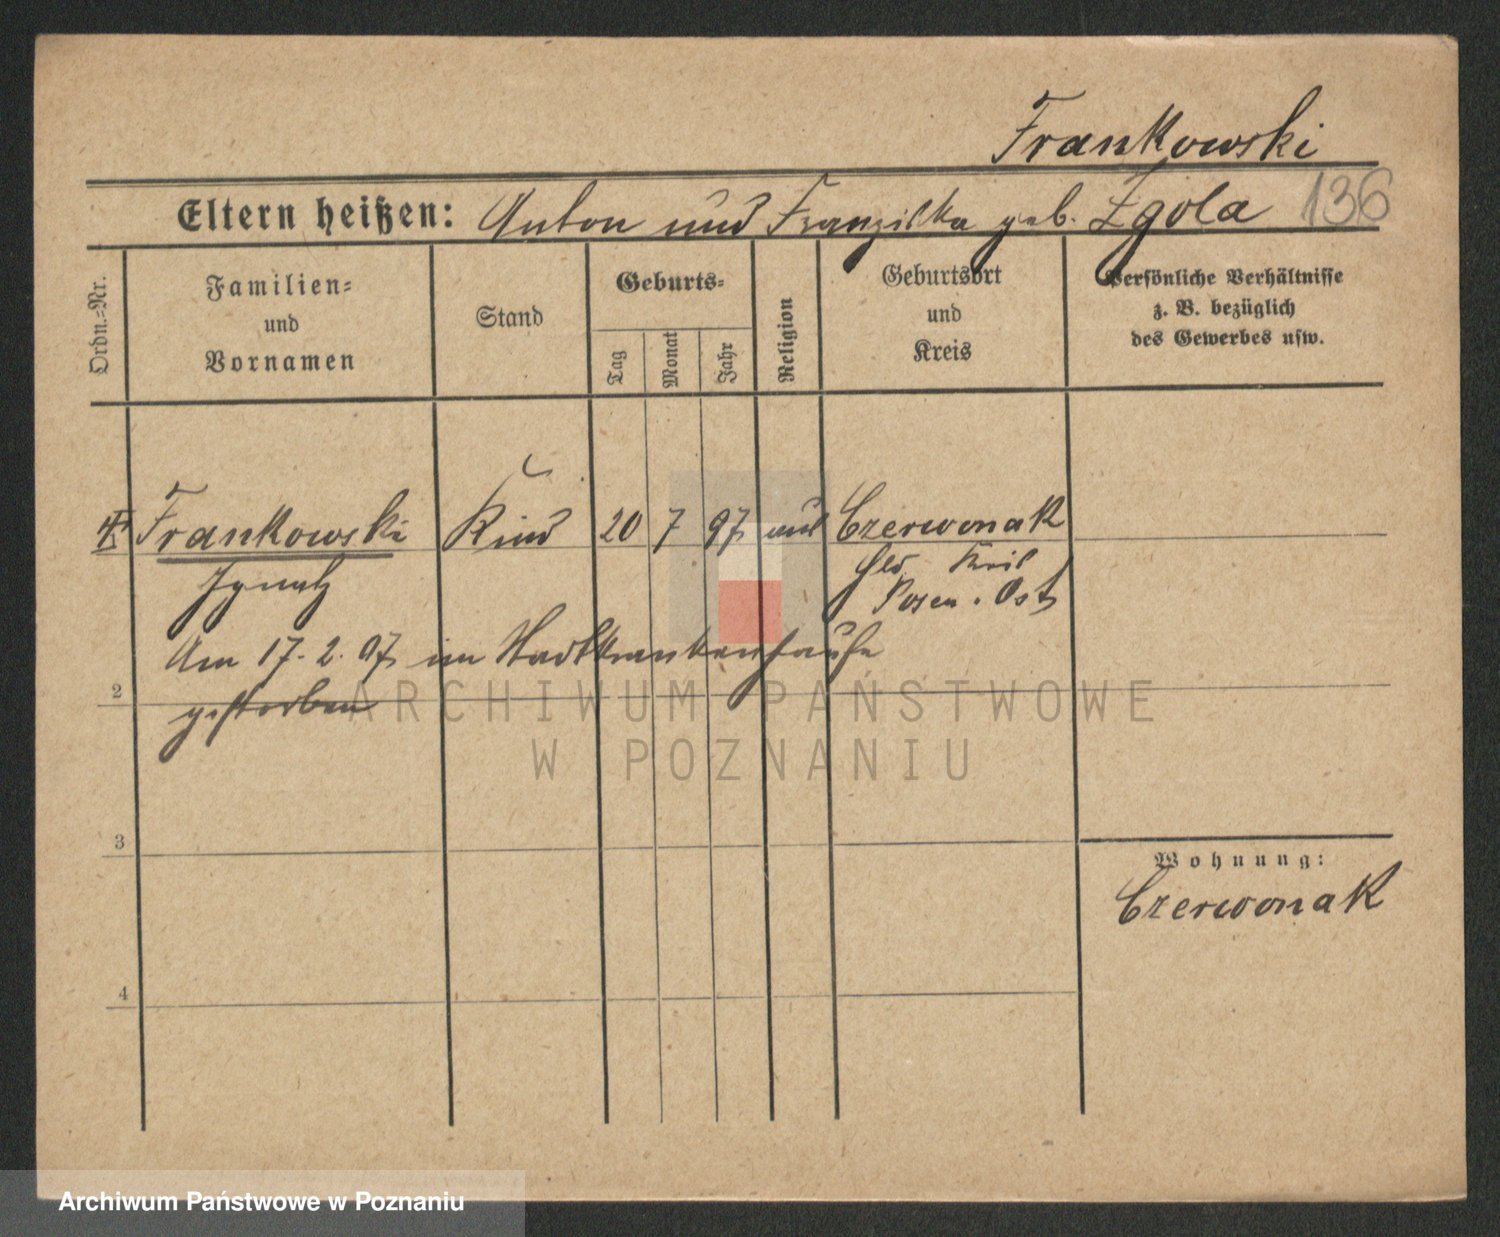 Frankowski
Eltern heißen: Anton und Franziska geb. Zgola 136
Ordn.-Nr.
Familien-
und
Vornamen
Stand
Geburts-
Tag
Monat
Jahr
Religion
Geburtsort
und
Kreis
Persönliche Verhältnisse
z. B. bezüglich
des Gewerbes usw.
Frankowski Kind 20 7 97 Czerwonak
Ignatz
Posen. Ost
Am 17. 2. 97 im Stadtkrankenhause
2
gestorben
ARCHIWUM PAŃSTWOWE
W POZNANIU
3
Wohnung:
Czerwonak
4
Archiwum Państwowe w Poznaniu